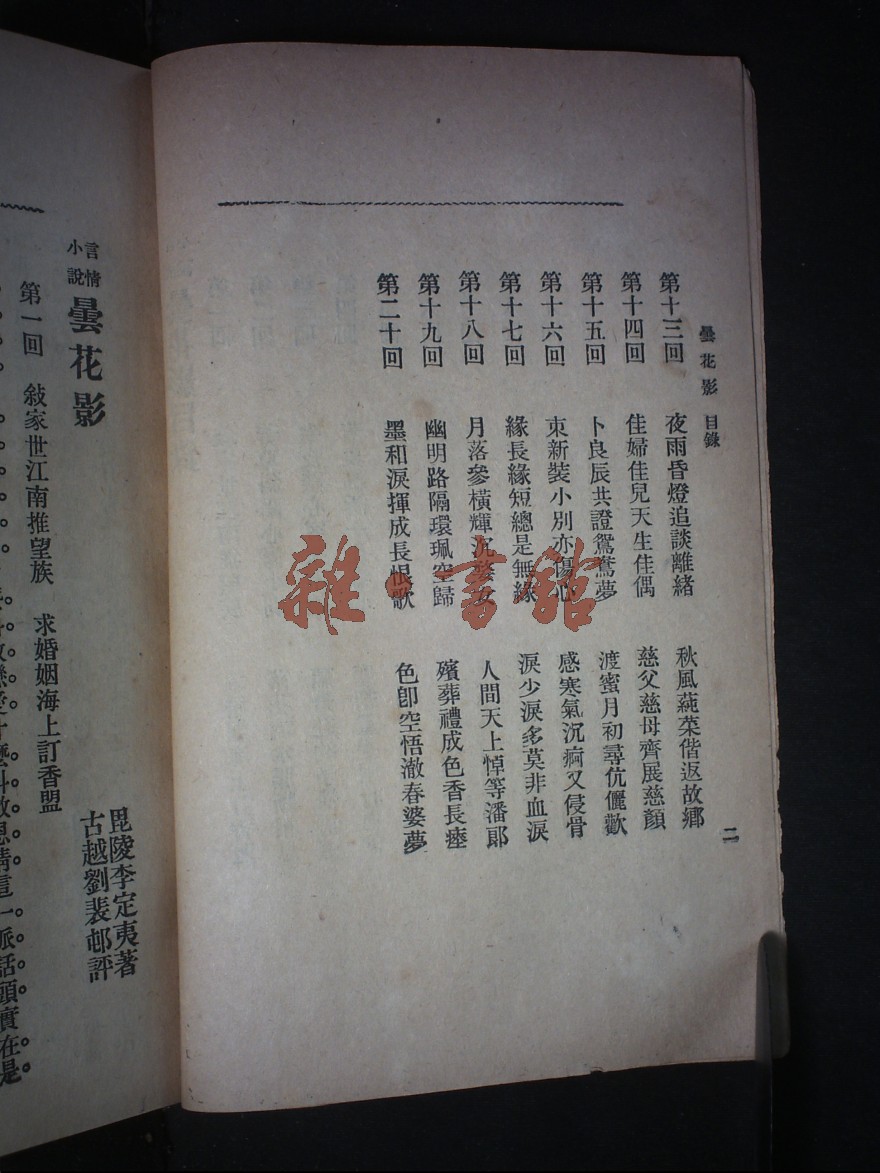 曇花影 目錄
二
第十三回 夜雨昏燈追談離緒 秋風蒓菜偕返故鄉
第十四回 佳婦佳兒天生佳偶 慈父慈母齊展慈顏
第十五回 卜良辰共證鴛鴦夢 渡蜜月初尋伉儷歡
第十六回 束新裝小別亦傷心 感寒氣沉疴又侵骨
第十七回 緣長緣短總是無緣 淚少淚多莫非血淚
第十八回 月落參橫輝沉婺女 人間天上悼等潘郎
第十九回 幽明路隔環珮空歸 殯葬禮成色香長瘞
第二十回 墨和淚揮成長恨歌 色卽空悟澈春婆夢
雜·書館
言情小說 曇花影
毘陵李定夷著
古越劉裴邨評
第一回 敍家世江南推望族 求婚姻海上訂香盟
思情這一派話頭實在是。